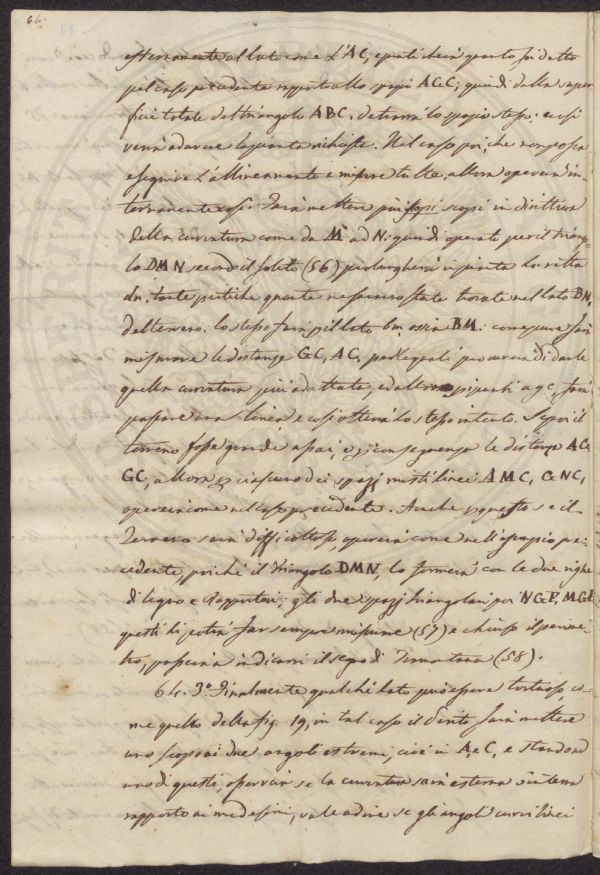 64.
esternamente al lato come l'AC, e praticherà quanto si è detto
pel caso precedente rapporto allo spazio ACGC; quindi dalla super
ficie totale del triangolo ABC, detrarrà lo spazio stesso: e così
verrà ad avere la pianta richiesta. Nel caso poi, che non possa
eseguire l'allineamento e misure tutte, allora opererà in-
ternamente così. Farà mettere più scopi in dirittura
della curvatura come da M ad N: quindi operato per il trian-
lo DMN secondo il solito (56) prolungherà in pianta la retta
dn, tante pertiche quante ne saranno state trovate nel lato BN,
del terreno: lo stesso farà pel lato bm, ossia BM: come pure farà
misurare le distanze GC, AC, per le quali procurerà di darle
quella curvatura più adattata, ed alli punti a g c, farà
passare una linea e così otterrà lo stesso intento. Se poi il
terreno fosse grande assai, e in conseguenza le distanze AC,
GC, allora in ciascuno dei spazj mistilinei AMC, GNC,
opererà come nel caso precedente. Anche in questo se il
Terreno sarà difficoltoso, opererà come nell'esempio pre-
cedente, poichè il triangolo DMN, lo formerà con le due righe
di legno e Rapportatori; gli due spazj triangolari poi NGF, MGF,
questi li potrà far sempre misurare (57) e chiuso il perime-
tro, passerà indicarvi il segno di Tramontana (58).
64. 3.° Finalmente qualche lato può essere tortuoso, co-
me quello della fig. 19, in tal caso il Perito farà mettere
uno scopo ai due angoli estremi, cioè in A, e C, e stando ad
uno di questi, osserverà se la curvatura sarà esterna o interna
rapporto ai medesimi, vale a dire se gli angoli curvilinei